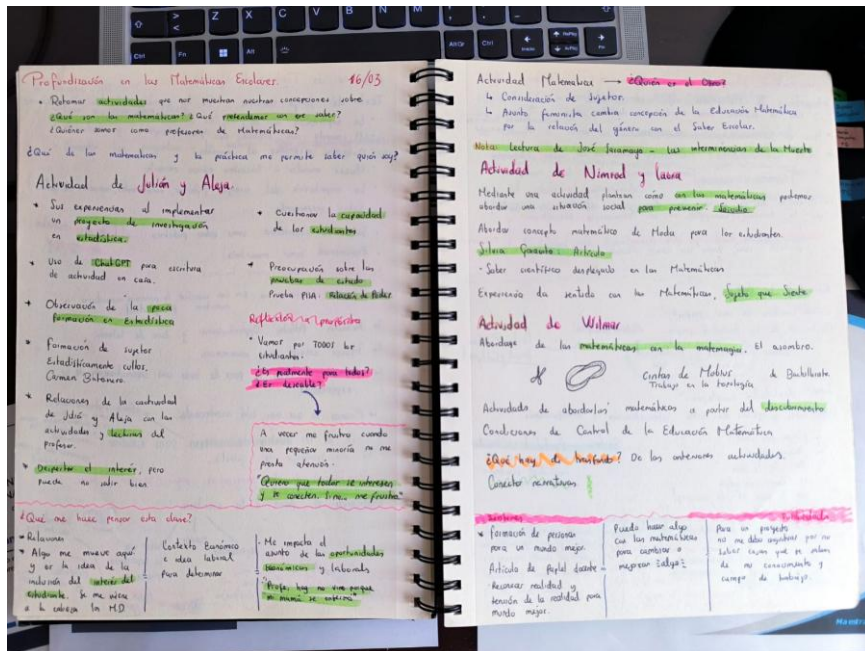 Profundización en las Matemáticas Escolares. 16/03
• Retomar actividades que nos muestran nuestras concepciones sobre
¿Qué son las matemáticas? ¿Qué pretendemos con ese saber?
¿Quiénes somos como profesores de Matemáticas?
¿Qué de las matemáticas y la práctica me permite saber quién soy?
Actividad de Julián y Aleja.
* Sus experiencias al implementar
un proyecto de investigación
en estadística.
* Uso de ChatGPT para escritura
de actividad en casa.
* Observación de la poca
formación en Estadística
* Formación de sujetos
Estadísticamente cultos.
Carmen Batanero.
* Relaciones de la actividad
de Julián y Aleja con las
actividades y lecturas del
profesor.
* Despertar el interés, pero
puede no salir bien
* Cuestionar la capacidad
de los estudiantes
* Preocupación sobre las
pruebas de estado
Prueba PISA: Relación de Poder
Reflexión
• Vamos por TODOS los
estudiantes.
¿Es realmente para todos?
¿Es deseable?
A veces me frustro cuando
una pequeña minoría no me
presta atención.
"Quiero que todos se interesen
y se conecten. Si no, me frustro"
¿Qué me hace pensar esta clase?
* Relaciones
* Algo me mueve aquí
y es la idea de la
inclusión del interés del
estudiante. Se me viene
a la cabeza las M.D
Contexto Económico
e idea laboral
Para determinar
• Me impacta el
asunto de las oportunidades
económicas y laborales
"Profe, hoy no vine porque
mi mamá se
Actividad Matemática → ¿Quién es el Otro?
↳ Consideración de Sujetos.
↳ Asunto feminista cambia concepción de la Educación Matemática
por la relación del género con el Saber Escolar.
Nota: Lectura de José Saramago - Las intermitencias de la Muerte
Actividad de Nimrod y Laura
Mediante una actividad plantean cómo con las matemáticas podemos
abordar una situación social para prevenir. Suicidio
Abordar concepto matemático de Moda para los estudiantes.
Silvia Artículo
- Saber científico desplegado en las Matemáticas
Experiencia da sentido con las Matemáticas, Sujeto que Siente
Actividad de Wilmar
Abordaje de las matemáticas con la matemagia. El asombro.
Cintas de Möbius de Bachillerato
Trabajo en la topología
Actividades de abordarlos matemáticos a partir del descubrimiento
Condiciones de Control de la Educación Matemática
¿Qué hay de trasfondo? De las anteriores actividades.
Conecto narrativas
* Formación de personas
para un mundo mejor.
Artículo de papel docente
- Reconocer realidad y
tensión de la realidad para
mundo mejor.
Puedo hacer algo
con las matemáticas
para cambiar o
mejorar ¿algo?
Para un proyecto
no me debo angustiar por no
saber cosas que se salen
de mi conocimiento y
campo de trabajo.
Z X C V B N M
Ctrl Fn Alt AltGr Ctrl